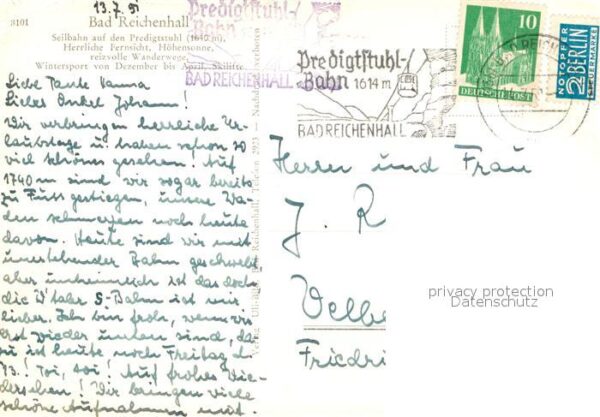 13.7.51
8101 Bad Reichenhall
Seilbahn auf den Predigtstuhl (1640 m),
Herrliche Fernsicht, Höhensonne,
reizvolle Wanderwege.
Wintersport von Dezember bis April, Skilifte
Liebe Tante Hanna
Lieber Onkel Johann!
Wir verbringen herrliche Ur-
laubstage u. haben schon so
viel schönes gesehen! Auf
1740 m sind wir sogar bereits
zu Fuss gestiegen, unsere Wa-
den schmerzen noch heute
davon. Heute sind wir mit
umstehender Bahn geschwebt
aber unheimlich ist das doch
die W'taler S-Bahn ist mir
lieber. Ich bin froh, wenn wir
erst wieder unten sind, da-
zu ist heute noch Freitag d.
13.! Toi, toi! Auf frohes Wie-
dersehen! Wir bringen viele
schöne Aufnahmen mit.
Predigtstuhl-
Bahn
BAD REICHENHALL
Predigtstuhl-
Bahn 1614 m
BAD REICHENHALL
10
DEUTSCHE POST
NOTOPFER
2 BERLIN
STEUERMARKE
Herrn und Frau
J. R
Velbe
Friedri
privacy protection
Datenschutz